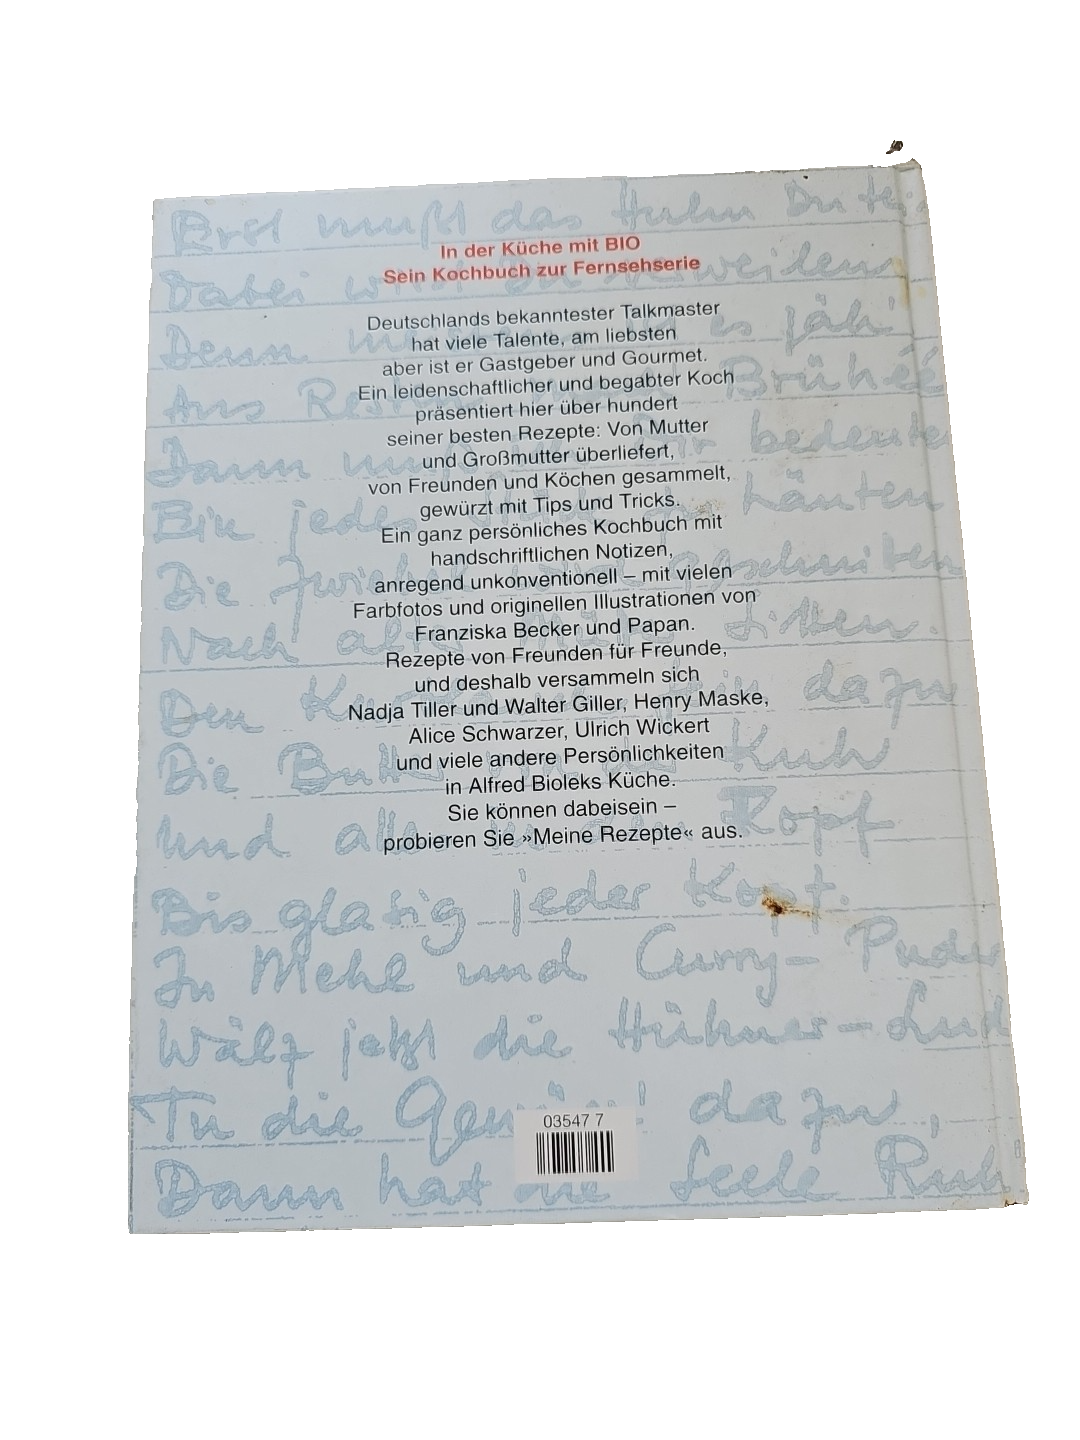 Erst muß das Huhn Du
In der Küche mit BIO
Sein Kochbuch zur Fernsehserie
Dabei
Deutschlands bekanntester Talkmaster
hat viele Talente, am liebsten
Denn es jäh
aber ist er Gastgeber und Gourmet.
Ein leidenschaftlicher und begabter Koch
Aus Brühe
präsentiert hier über hundert
seiner besten Rezepte: Von Mutter
und Großmutter überliefert,
Dann
von Freunden und Köchen gesammelt,
gewürzt mit Tips und Tricks.
Bin jedes häuten
Ein ganz persönliches Kochbuch mit
handschriftlichen Notizen,
anregend unkonventionell – mit vielen
Die
Farbfotos und originellen Illustrationen von
Franziska Becker und Papan.
Nach Sitten.
Rezepte von Freunden für Freunde,
und deshalb versammeln sich
Den dazu
Nadja Tiller und Walter Giller, Henry Maske,
Alice Schwarzer, Ulrich Wickert
und viele andere Persönlichkeiten
Die Kuh
in Alfred Bioleks Küche.
Sie können dabeisein –
und Topf
probieren Sie »Meine Rezepte« aus.
Bis glasig jeder Kopf.
In Mehl und Curry-
Wälz jetzt die Hühner-
Tu die dazu,
Dann hat die Seele Ruh
03547 7